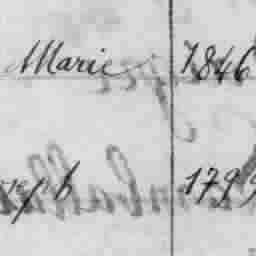 Marie 1846
seph 1799